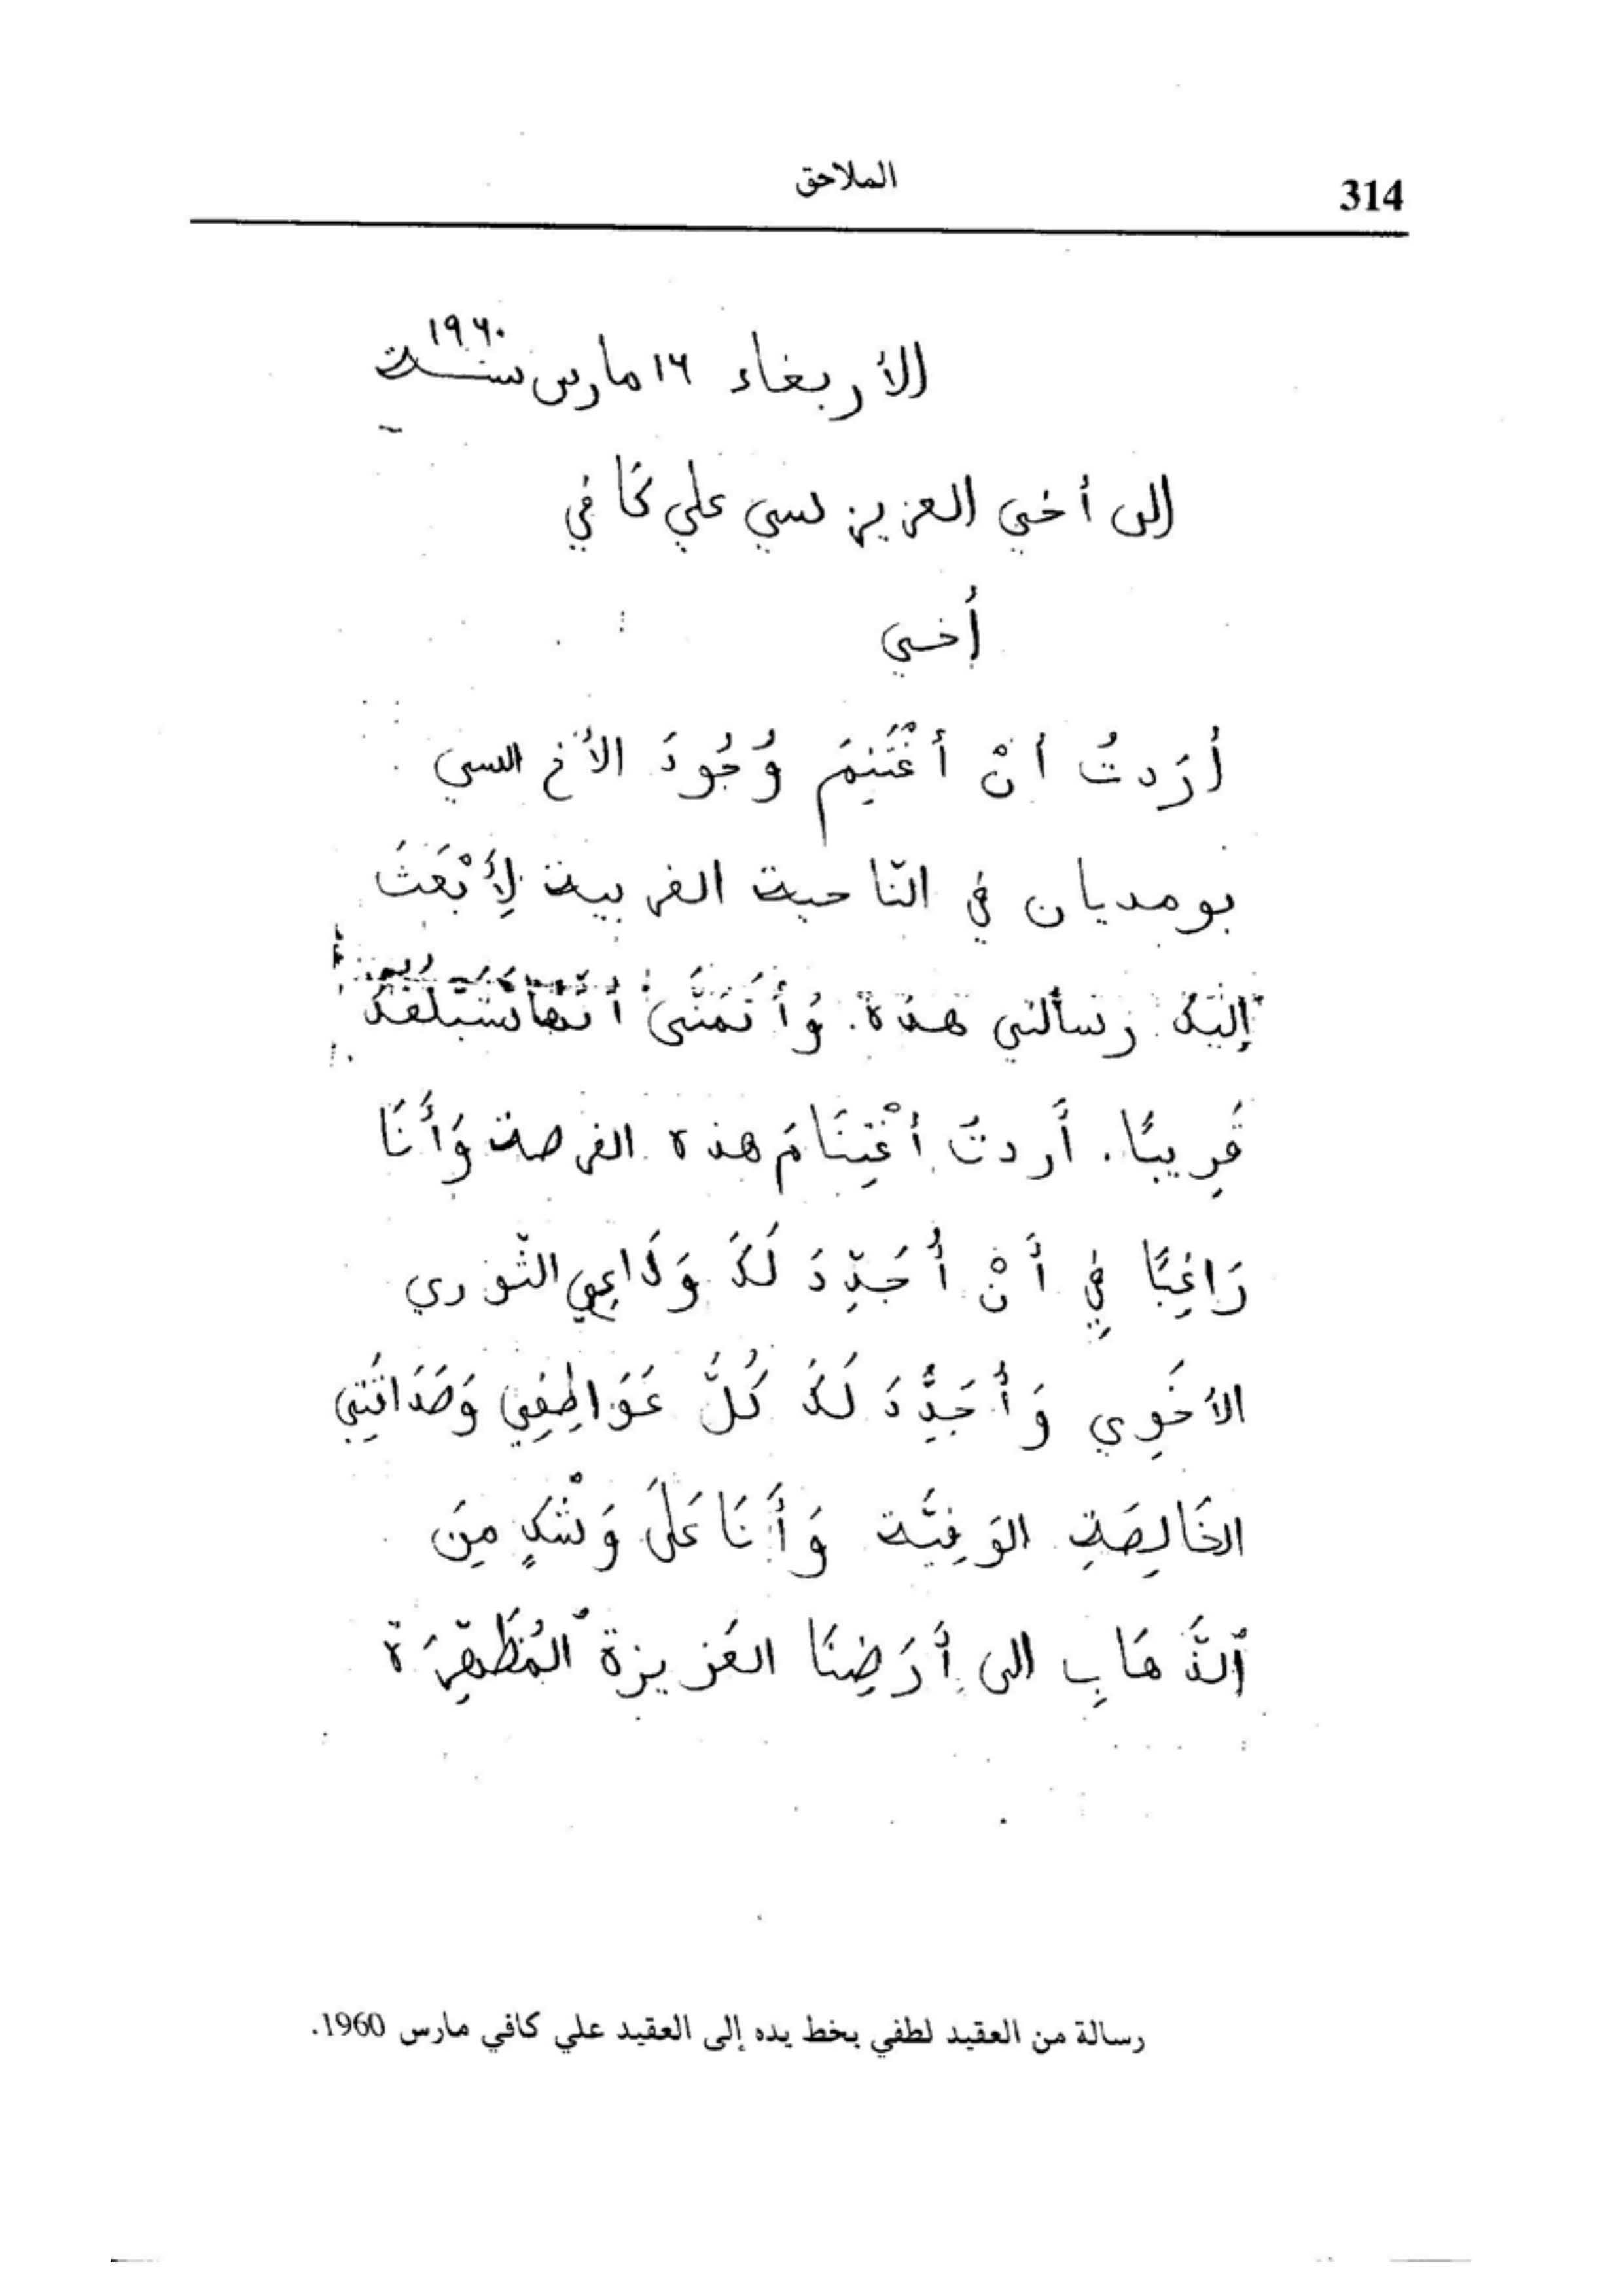 الملاحق
314
الأربعاء ١٦ مارس سنة ١٩٦٠
الى أخي العزيز سي علي كافي
أخي
أرَدتُ أنْ أغْتَنِمَ وُجُودَ الأخ السي
بومديان في النّاحية الغربية لِأَبْعَثَ
إليْكَ رسالتي هذه. وَأتَمَنَّى أنَّها سَتَبْلُغُكَ
قَرِيبًا. أَردتُ أغْتِنَامَ هذه الفرصة وَأَنَا
رَاغِبًا فِي أَنْ أُجَدِّدَ لَكَ وَلَاءِي الثّوري
الأخَوِي وَأُجَدِّدَ لَكَ كُلَّ عَوَاطِفِي وَصَدَاقَتِي
الخَالِصَةِ الوَفِيَّة وَأَنَا عَلَى وَشْكٍ مِنَ
ٱلذَّهَابِ الى أَرَضِنَا العَزيزة المُطَهَّرَة
رسالة من العقيد لطفي بخط يده إلى العقيد علي كافي مارس 1960.